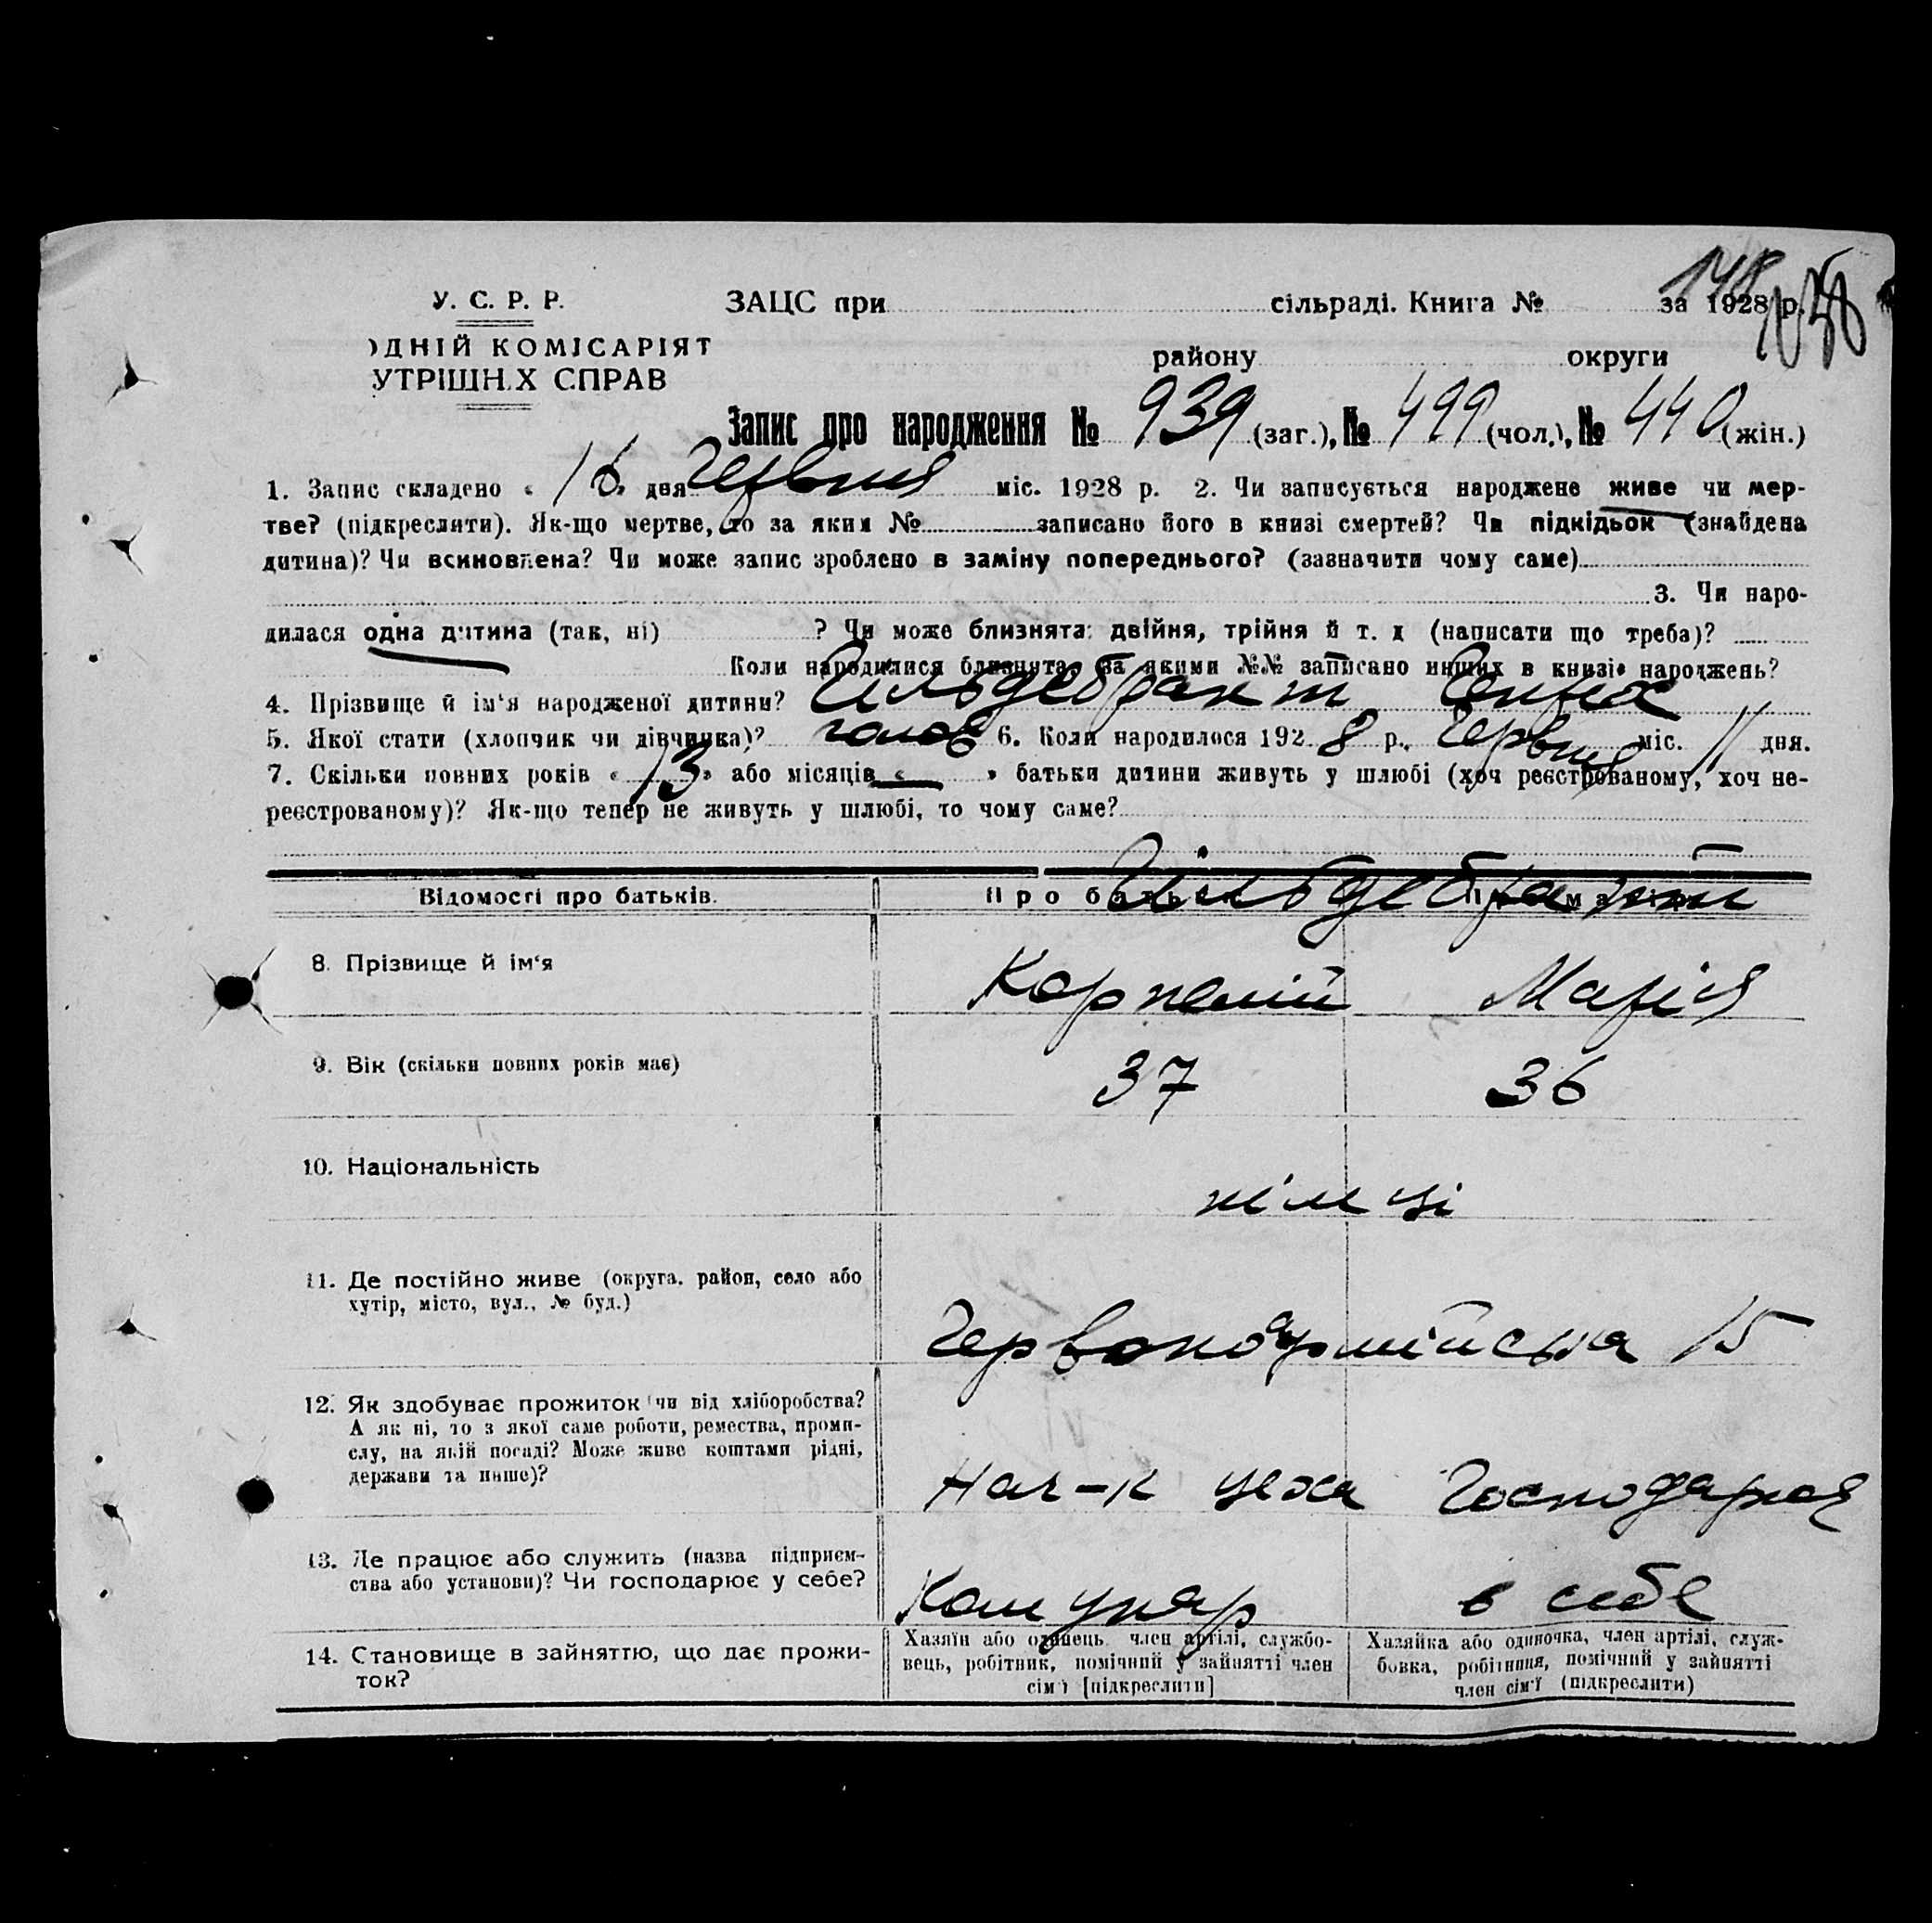 148
У. С. Р. Р.
ЗАЦС при сільраді. Книга № за 1928 р.
ОДНІЙ КОМІСАРІЯТ
району округи
УТРІШН.Х СПРАВ
Запис про народження № 939 (заг.), № 499 (чол.), № 440 (жін.)
1. Запис складено « 16 » дня Червня міс. 1928 р. 2. Чи записується народжене живе чи мер-
тве? (підкреслити). Як-що мертве, то за яким № записано його в книзі смертей? Чи підкідьок (знайдена
дитина)? Чи всиновлена? Чи може запис зроблено в заміну попереднього? (зазначити чому саме)
3. Чи наро-
дилася одна дитина (так, ні) ? Чи може близнята: двійня, трійня й т. д (написати що треба)?
Коли народилися близнята, за якими №№ записано инших в книзі народжень?
4. Прізвище й ім'я народженої дитини? Гільдебрант
5. Якої стати (хлопчик чи дівчинка)? чолов 6. Коли народилося 1928 р., Червня міс. 11 дня.
7. Скільки повних років « 13 » або місяців « — » батьки дитини живуть у шлюбі (хоч реєстрованому, хоч не-
реєстрованому)? Як-що тепер не живуть у шлюбі, то чому саме?
Відомості про батьків. Про батька Про матір
Гільдебранти
8. Прізвище й ім'я Корнелій Марія
9. Вік (скільки повних років має) 37 36
10. Національність німці
11. Де постійно живе (округа. район, село або
хутір, місто, вул., № буд.) Червоноармійська 15
12. Як здобуває прожиток чи від хліборобства?
А як ні, то з якої саме роботи, ремества, проми-
слу, на якій посаді? Може живе коштами рідні,
держави та инше)? Нач-к цеха Господарює
13. Де працює або служить (назва підприєм-
ства або установи)? Чи господарює у себе? Комунар в себе
14. Становище в зайняттю, що дає прожи-
ток?
Хазяїн або одинець член артілі, службо-
вець, робітник, помічний у зайнятті член
сім'ї [підкреслити]
Хазяйка або одиночка, член артілі, служ-
бовка, робітниця, помічний у зайнятті
член сім'ї (підкреслити)